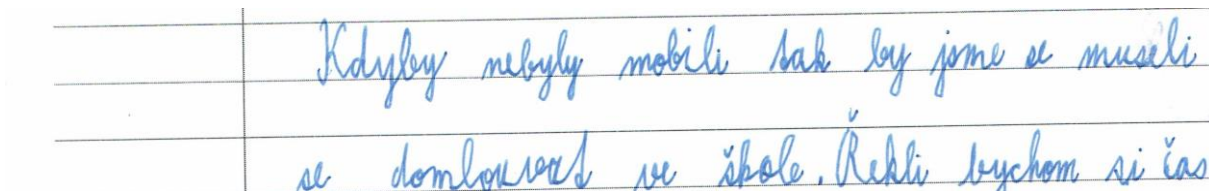 Kdyby nebyly mobili tak by jsme se museli
se domlouvat ve škole. Řekli bychom si čas